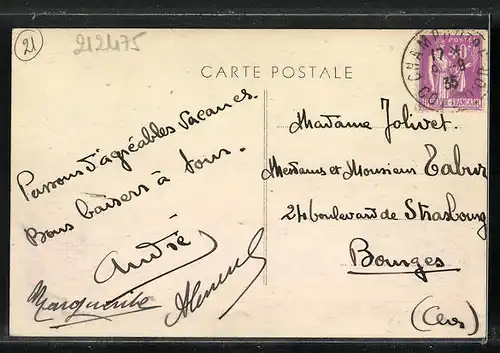 21
212475
CARTE POSTALE
Passons d'agréables vacances.
Bons baisers à tous.
André
Marguerite
Madame Jolivet.
Mesdames et Monsieur Tabur
24 boulevard de Strasbourg
Bourges
(Cher)